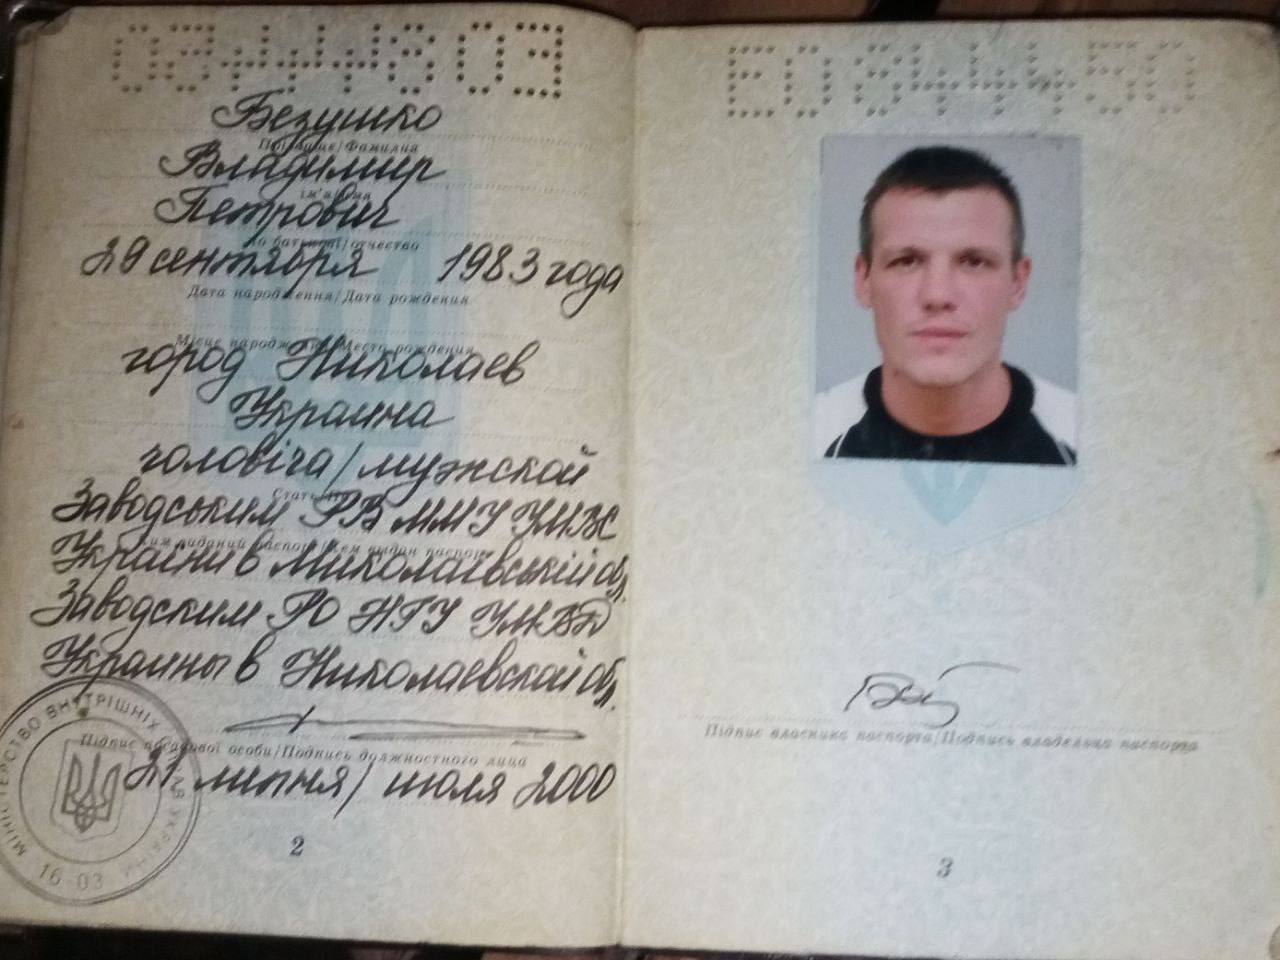 Безушко
Прізвище/Фамилия
Владимир
ім'я/имя
Петрович
по батькові/отчество
29 сентября 1983 года
Дата народження/Дата рождения
Місце народження/Место рождения
город Николаев
Украина
чоловіча/мужской
Стать/Пол
Заводським РВ ММУ УМВС
Ким виданий паспорт/Кем выдан паспорт
України в Миколаївській обл.
Заводским РО НГУ УМВД
Украины в Николаевской обл.
Підпис посадової особи/Подпись должностного лица
21 липня/июля 2000
МІНІСТЕРСТВО ВНУТРІШНІХ СПРАВ УКРАЇНИ
16-03
2
ЕО 844450
Підпис власника паспорта/Подпись владельца паспорта
3